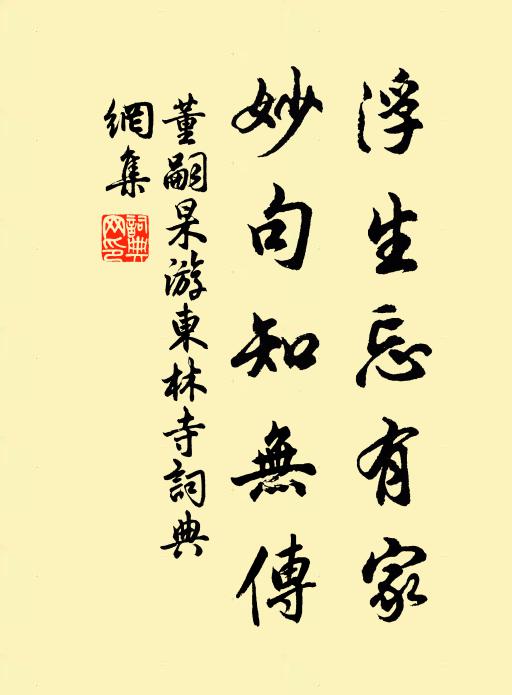 浮生忘有家
妙句知無傳
董嗣杲游東林寺詞典
網集
詞典網印